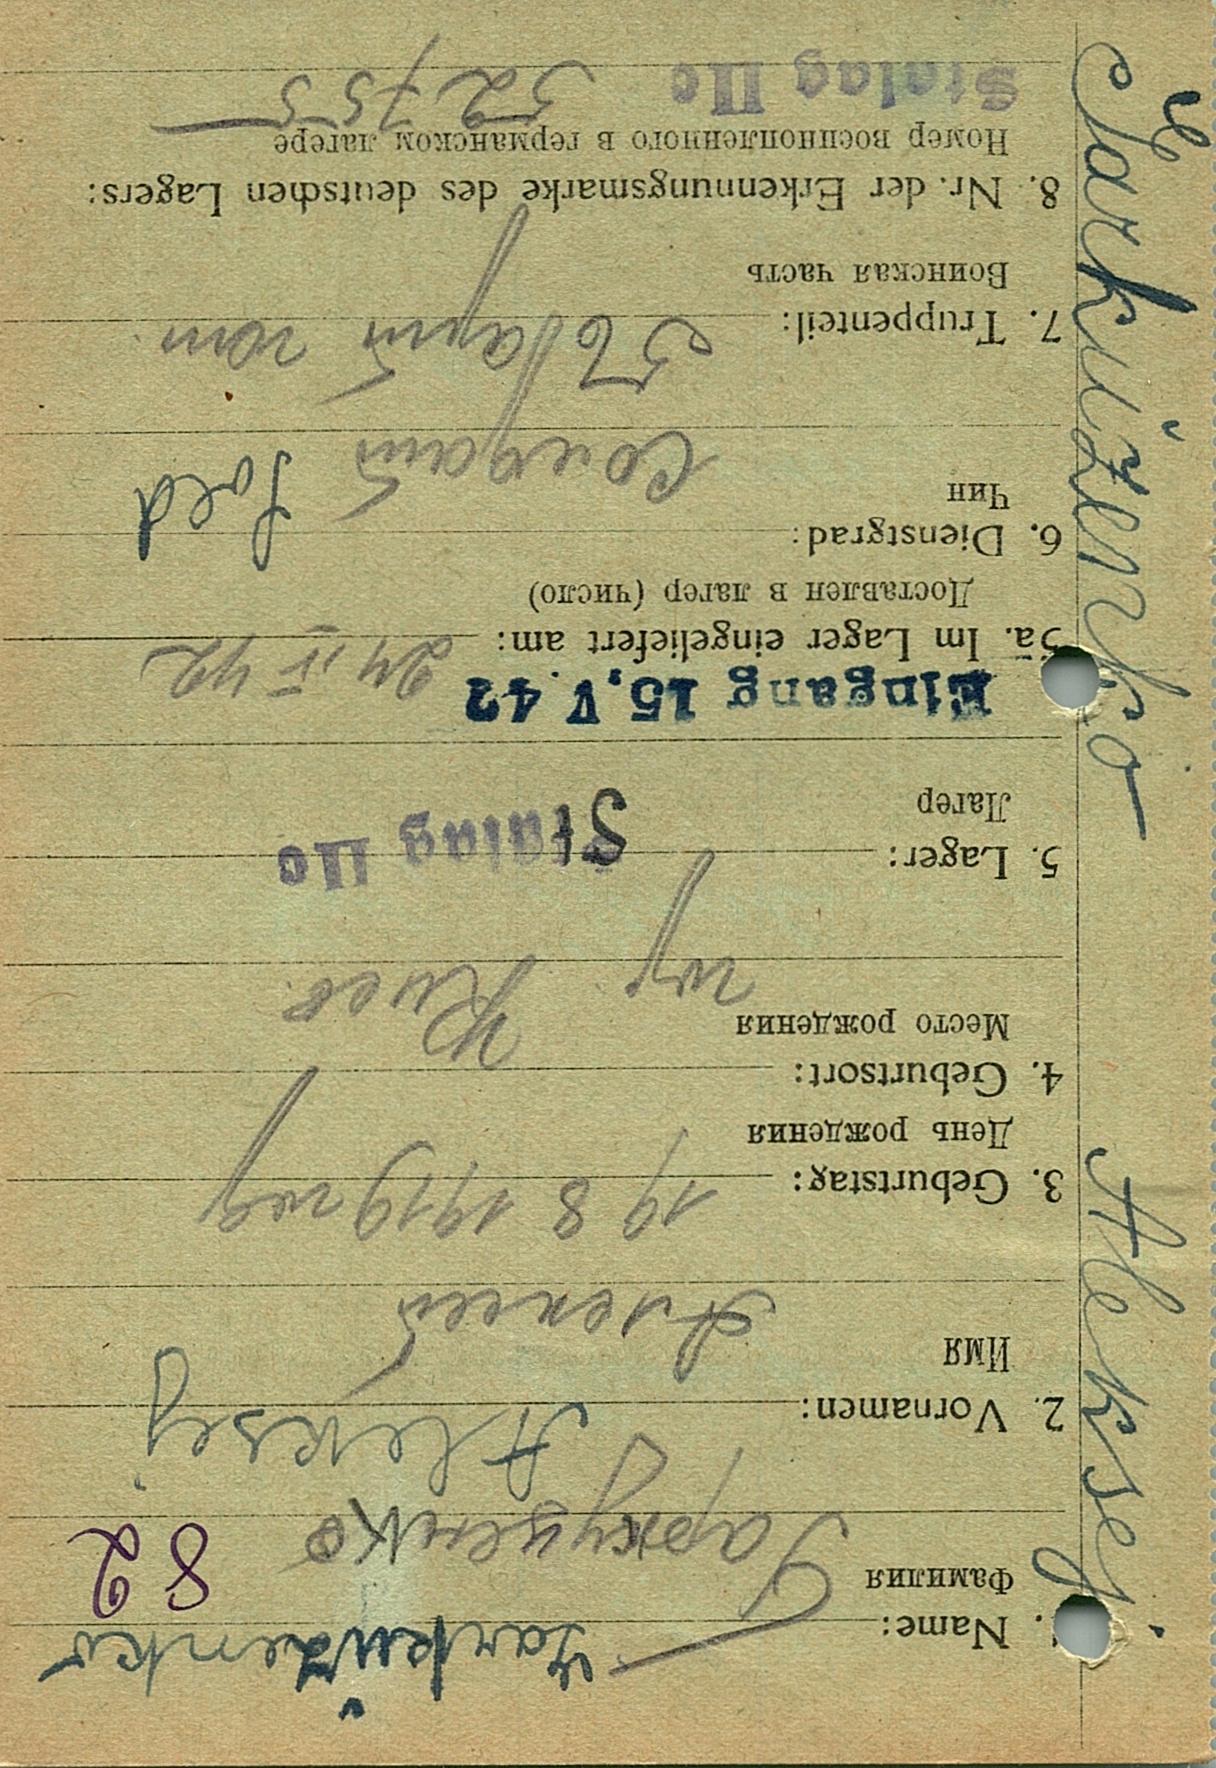 Garkuženko
1. Name:
Фамилия
82
Гаркуженко
Aleksej
2. Vornamen:
Имя
Алексей
3. Geburtstag: 19 8 1919 году
День рождения
4. Geburtsort:
Место рождения
Киев
5. Lager: Stalag IIc
Лагер
Eingang 15. V. 42
5a. Im Lager eingeliefert am: 24 IV 42
Доставлен в лагер (число)
6. Dienstgrad: Sold
Чин
Солдат
7. Truppenteil:
Воинская часть
8. Nr. der Erkennungsmarke des deutschen Lagers:
Номер военнопленного в германском лагере
Stalag IIc 52755
Garkuženko Aleksej